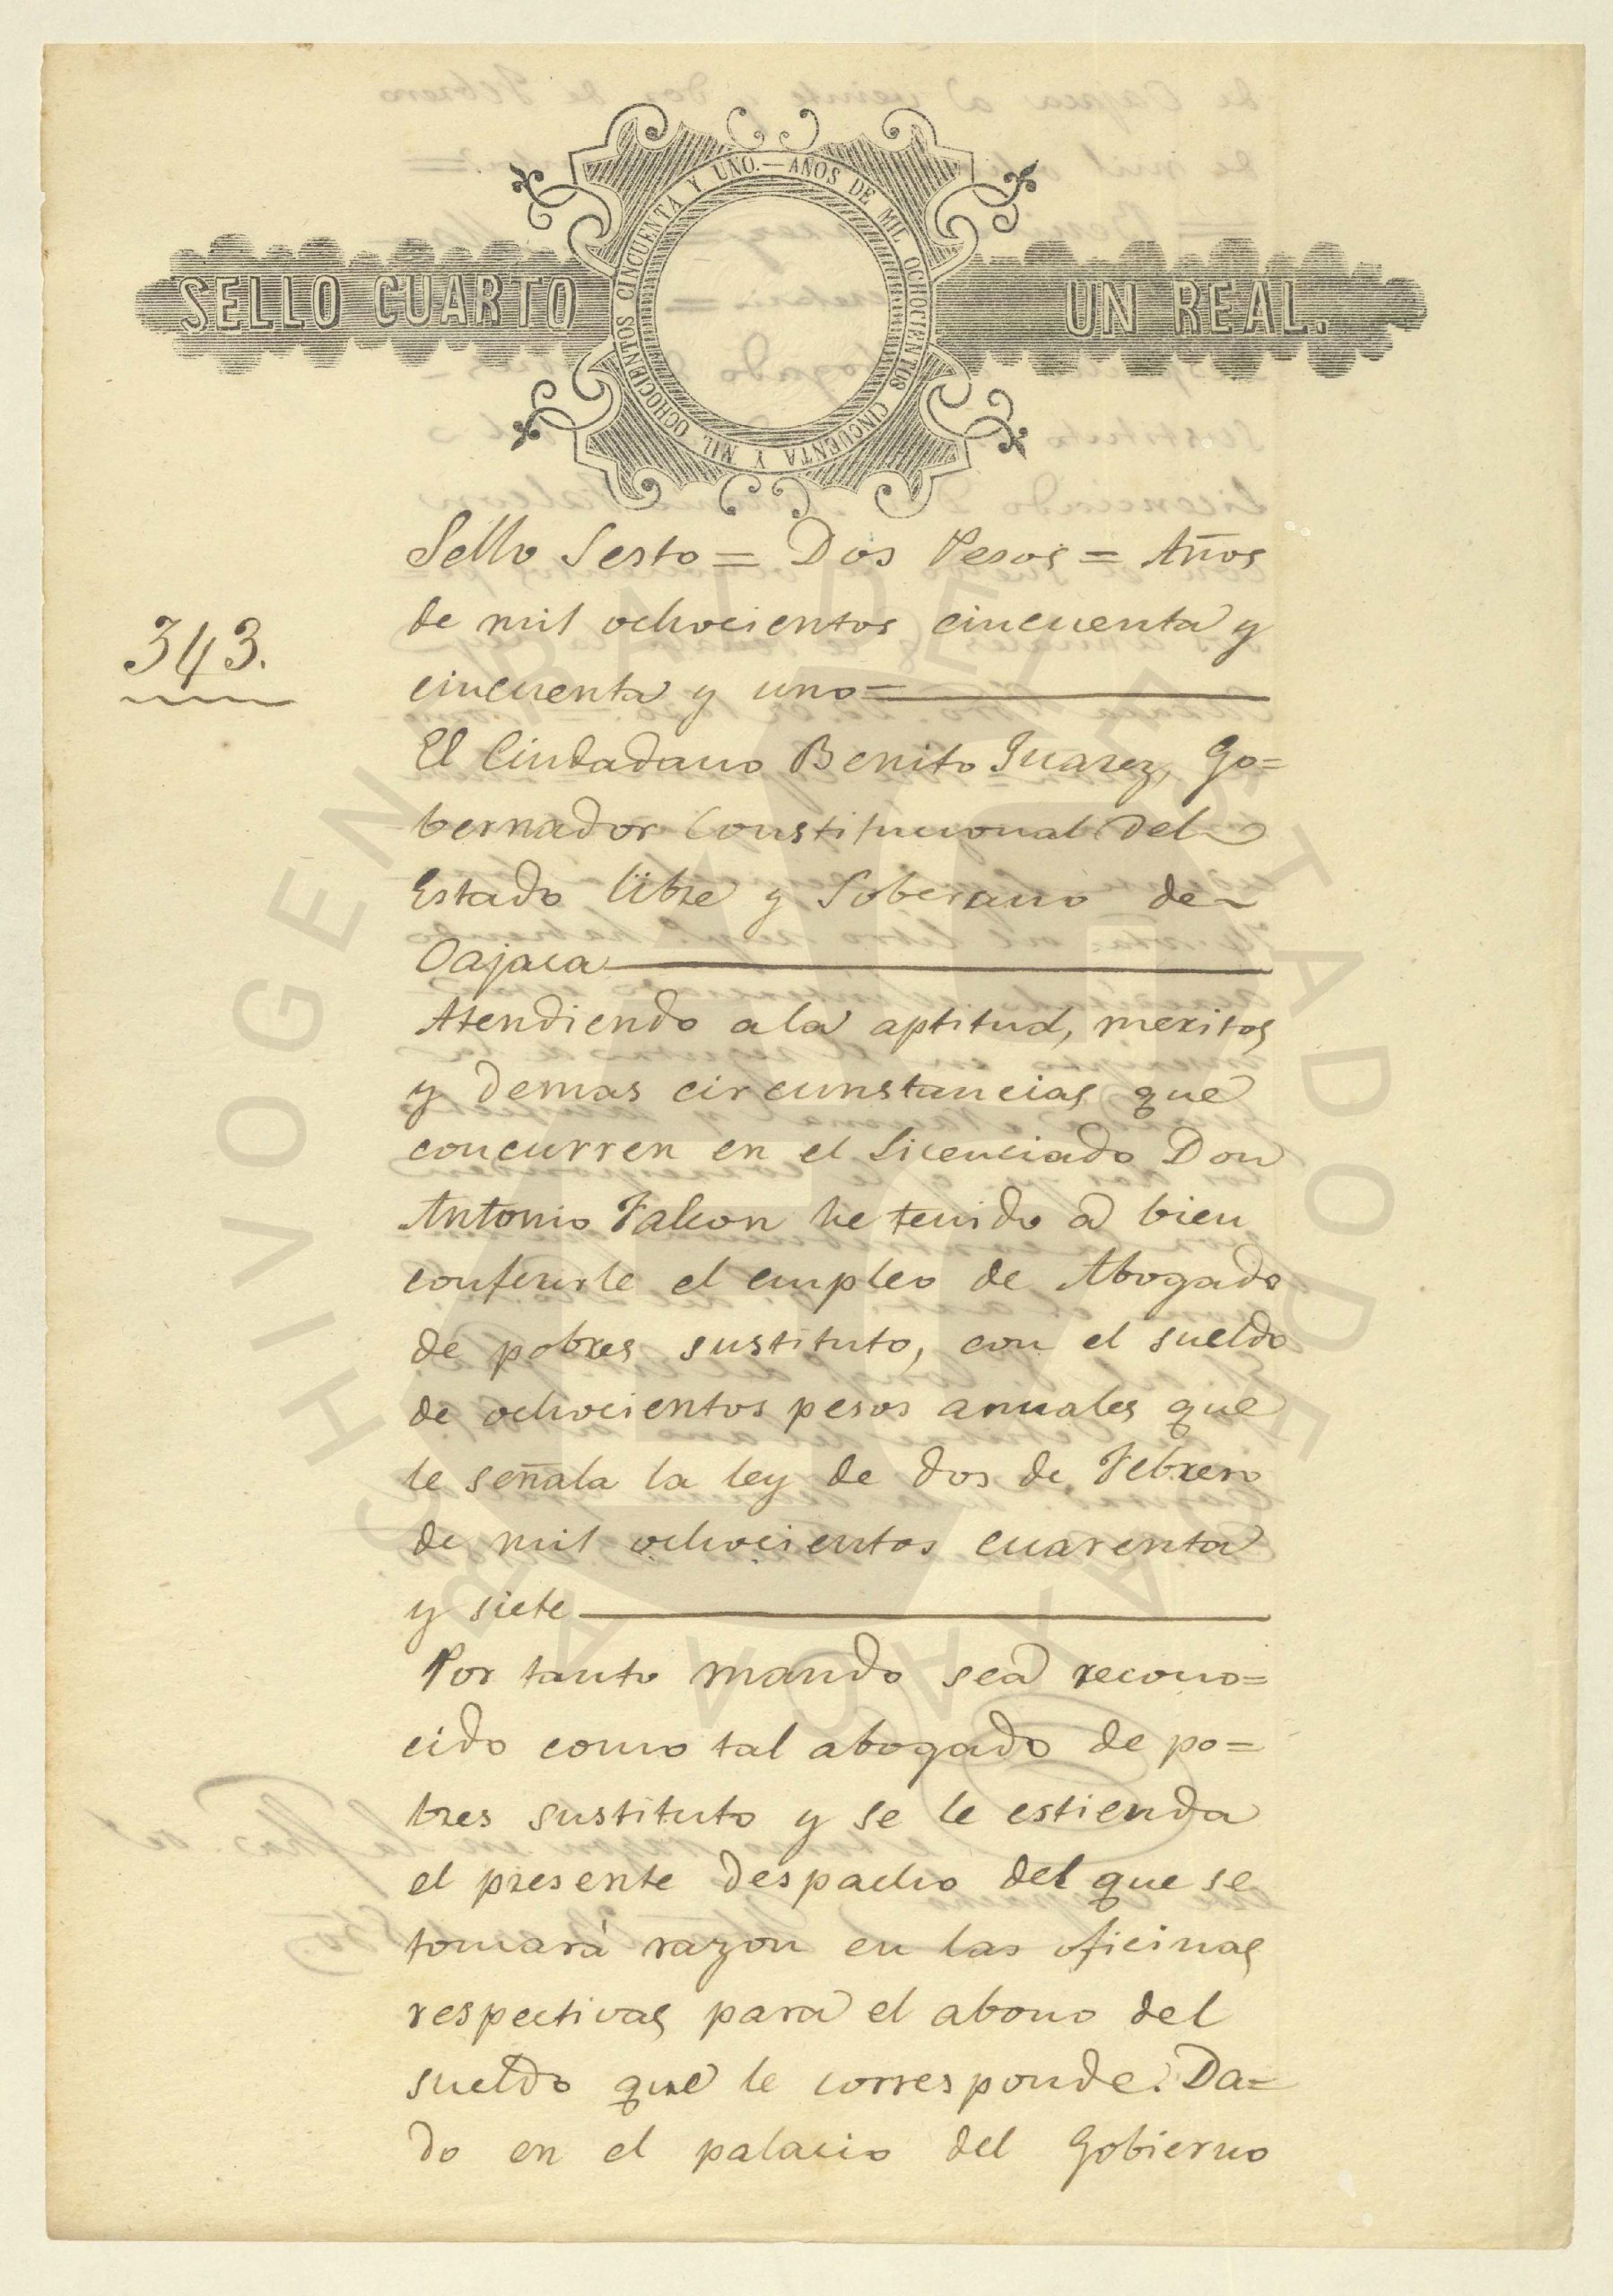 SELLO CUARTO
AÑOS DE MIL OCHOCIENTOS CINCUENTA Y MIL OCHOCIENTOS CINCUENTA Y UNO.—
UN REAL.
343.
Sello Sesto = Dos Pesos = Años
de mil ochocientos cincuenta y
cincuenta y uno=
El Ciudadano Benito Juarez, Go=
bernador Constitucional del
Estado libre y Soberano de
Oajaca
Atendiendo a la aptitud, meritos
y demas circunstancias que
concurren en el Licenciado Don
Antonio Falcon he tenido a bien
conferirle el empleo de Abogado
de pobres sustituto, con el sueldo
de ochocientos pesos anuales que
le señala la ley de dos de Febrero
de mil ochocientos cuarenta
y siete
Por tanto mando sea recono=
cido como tal abogado de po=
bres sustituto y se le estienda
el presente despacho del que se
tomará razon en las oficinas
respectivas para el abono del
sueldo que le corresponde. Da=
do en el palacio del Gobierno
ARCHIVO GENERAL DEL ESTADO DE OAXACA